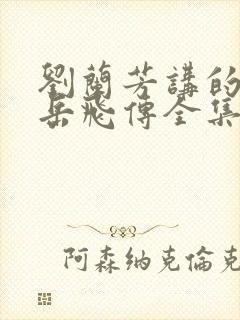 劉蘭芳講的
岳飛傳全集
阿森纳克倫克